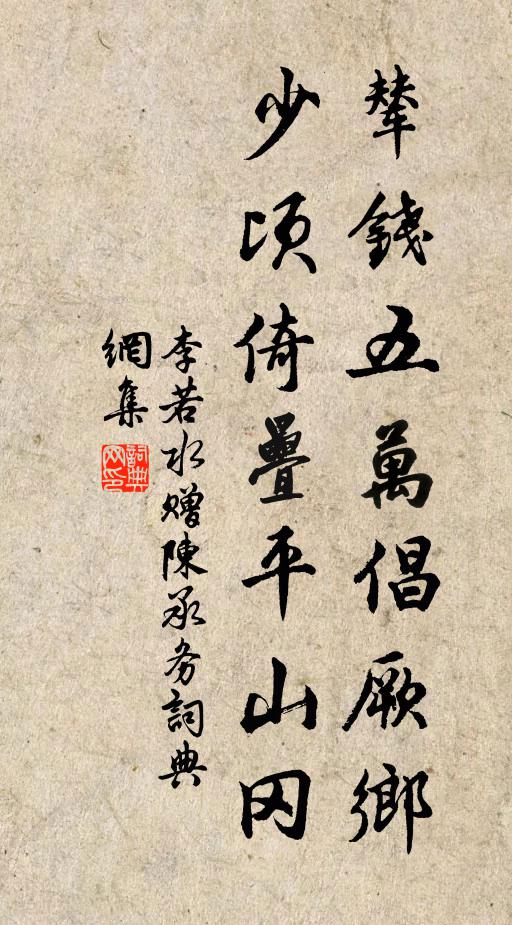 輦錢五萬倡厥鄉
少頃倚疊平山冈
李若水赠陳承务詞典
網集
詞典
网印